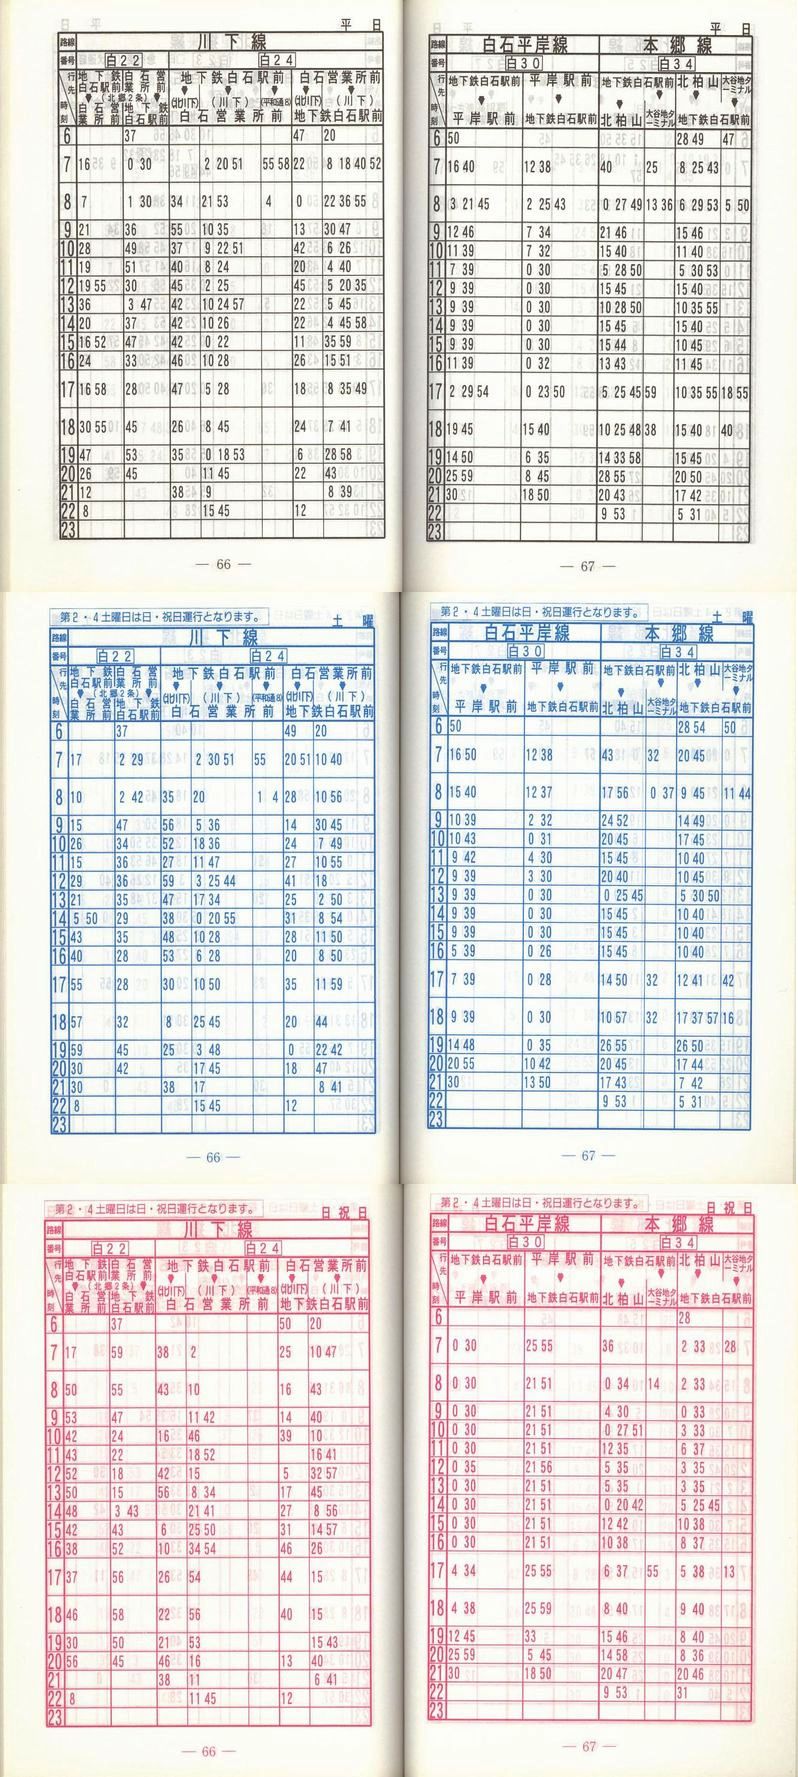 平 日
路線 川下線
番号 白22 白24
行先 時刻 地下鉄白石駅前 (北郷2条) 白石営業所前 白石営業所前 地下鉄白石駅前 地下鉄白石駅前 (北川下) (川下) (平和通8) 白石営業所前 白石営業所前 (北川下) (川下) 地下鉄白石駅前
6 37 47 20
7 16 0 30 2 20 51 55 58 22 8 18 40 52
8 7 1 30 34 21 53 4 0 22 36 55
9 21 36 55 10 35 13 30 47
10 28 49 37 9 22 51 42 6 26
11 19 51 40 8 24 20 4 40
12 19 55 30 45 2 25 45 5 20 35
13 36 3 47 42 10 24 57 22 5 45
14 20 37 42 10 26 22 4 45 58
15 16 52 47 42 0 22 11 35 59
16 24 33 46 10 28 26 15 51
17 16 58 28 47 5 28 18 8 35 49
18 30 55 45 26 8 45 24 7 41
19 47 53 35 0 18 53 6 28 58
20 26 45 11 45 22 43
21 12 38 9 8 39
22 8 15 45 12
23
― 66 ―
平 日
路線 白石平岸線 本郷線
番号 白30 白34
行先 時刻 地下鉄白石駅前 平岸駅前 平岸駅前 地下鉄白石駅前 地下鉄白石駅前 北柏山 大谷地ターミナル 北柏山 大谷地ターミナル 地下鉄白石駅前
6 50 28 49 47
7 16 40 12 38 40 25 8 25 43
8 3 21 45 2 25 43 0 27 49 13 36 6 29 53 5 50
9 12 46 7 34 21 46 15 46
10 11 39 7 32 15 40 11 40
11 7 39 0 30 5 28 50 5 30 53
12 9 39 0 30 15 45 15 40
13 9 39 0 30 10 28 50 10 35 55
14 9 39 0 30 15 45 15 40
15 9 39 0 30 15 44 10 45
16 11 39 0 32 13 43 11 45
17 2 29 54 0 23 50 5 25 45 59 10 35 55 18 55
18 19 45 15 40 10 25 48 38 15 40 40
19 14 50 6 35 14 33 58 15 45
20 25 59 8 45 28 55 20 50
21 30 18 50 20 43 17 42
22 9 53 5 31
23
― 67 ―
第2・4土曜日は日・祝日運行となります。 土 曜
路線 川下線
番号 白22 白24
行先 時刻 地下鉄白石駅前 (北郷2条) 白石営業所前 白石営業所前 地下鉄白石駅前 地下鉄白石駅前 (北川下) (川下) (平和通8) 白石営業所前 白石営業所前 (北川下) (川下) 地下鉄白石駅前
6 37 49 20
7 17 2 29 2 30 51 55 20 51 10 40
8 10 2 42 35 20 1 4 28 10 56
9 15 47 56 5 36 14 30 45
10 26 34 52 18 36 24 7 49
11 15 36 27 11 47 27 10 55
12 29 36 59 3 25 44 41 18
13 21 35 47 17 34 25 2 50
14 5 50 29 38 0 20 55 31 8 54
15 43 35 48 10 28 28 11 50
16 40 28 53 6 28 20 8 50
17 55 28 30 10 50 35 11 59
18 57 32 8 25 45 20 44
19 59 45 25 3 48 0 22 42
20 30 42 17 45 18 47
21 30 38 17 8 41
22 8 15 45 12
23
― 66 ―
第2・4土曜日は日・祝日運行となります。 土 曜
路線 白石平岸線 本郷線
番号 白30 白34
行先 時刻 地下鉄白石駅前 平岸駅前 平岸駅前 地下鉄白石駅前 地下鉄白石駅前 北柏山 大谷地ターミナル 北柏山 大谷地ターミナル 地下鉄白石駅前
6 50 28 54 50
7 16 50 12 38 43 32 20 45
8 15 40 12 37 17 56 0 37 9 45 11 44
9 10 39 2 32 24 52 14 49
10 10 43 0 31 20 45 17 45
11 9 42 4 30 15 45 10 40
12 9 39 3 30 20 40 10 45
13 9 39 0 30 0 25 45 5 30 50
14 9 39 0 30 15 45 10 40
15 9 39 0 30 15 45 10 40
16 5 39 0 26 15 45 10 40
17 7 39 0 28 14 50 32 12 41 42
18 9 39 0 30 10 57 32 17 37 57 16
19 14 48 0 35 26 55 26 50
20 20 55 10 42 20 45 17 44
21 30 13 50 17 43 7 42
22 9 53 5 31
23
― 67 ―
第2・4土曜日は日・祝日運行となります。 日 祝 日
路線 川下線
番号 白22 白24
行先 時刻 地下鉄白石駅前 (北郷2条) 白石営業所前 白石営業所前 地下鉄白石駅前 地下鉄白石駅前 (北川下) (川下) (平和通8) 白石営業所前 白石営業所前 (北川下) (川下) 地下鉄白石駅前
6 37 50 20
7 17 59 38 2 25 10 47
8 50 55 43 10 16 43
9 53 47 11 42 14 40
10 42 24 16 46 39 10
11 43 22 18 52 16 41
12 52 18 42 15 5 32 57
13 50 15 56 8 34 17 45
14 48 3 43 21 41 27 8 56
15 42 43 6 25 50 31 14 57
16 38 52 10 34 54 46 26
17 37 56 26 54 44 15
18 46 58 22 56 40 15
19 30 50 21 53 15 43
20 56 45 46 16 13 40
21 38 11 6 41
22 8 11 45 12
23
― 66 ―
第2・4土曜日は日・祝日運行となります。 日 祝 日
路線 白石平岸線 本郷線
番号 白30 白34
行先 時刻 地下鉄白石駅前 平岸駅前 平岸駅前 地下鉄白石駅前 地下鉄白石駅前 北柏山 大谷地ターミナル 北柏山 大谷地ターミナル 地下鉄白石駅前
6 28
7 0 30 25 55 36 2 33 28
8 0 30 21 51 0 34 14 2 33
9 0 30 21 51 4 30 0 33
10 0 30 21 51 0 27 51 3 33
11 0 30 21 51 12 35 6 37
12 0 35 21 56 5 35 3 35
13 0 30 21 51 5 35 3 35
14 0 30 21 51 0 20 42 5 25 45
15 0 30 21 51 12 42 10 38
16 0 30 21 51 10 38 8 37
17 4 34 25 55 6 37 55 5 38 13
18 4 38 25 59 8 40 9 40
19 12 45 33 15 46 8 40
20 25 59 5 45 14 58 8 36
21 30 18 50 20 47 20 46
22 9 53 31
23
― 67 ―